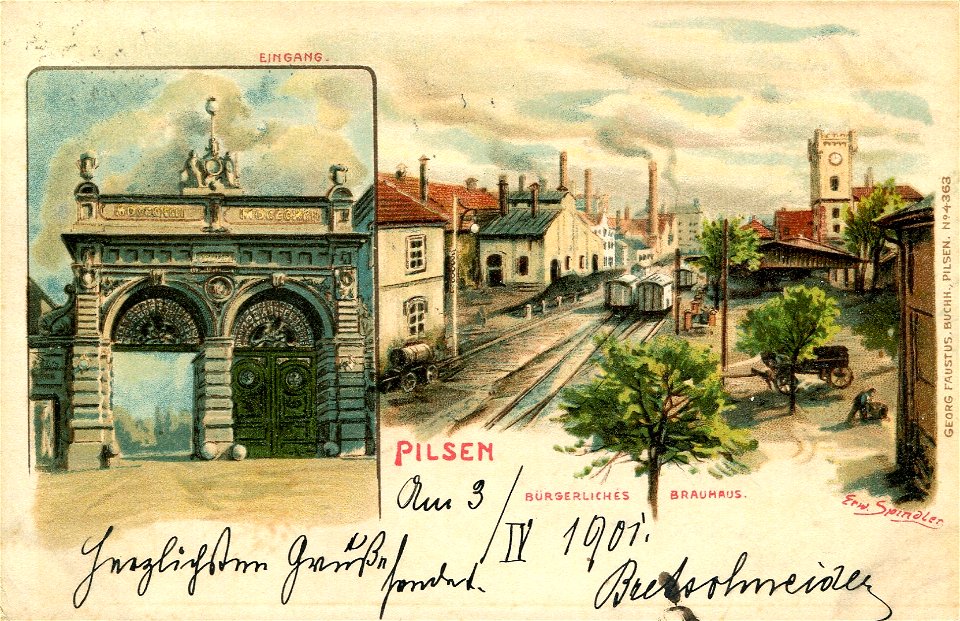 EINGANG.
MDCCCXLII MDCCCXCII
PILSEN
BÜRGERLICHES BRAUHAUS.
Erw. Spindler
GEORG FAUSTUS, BUCHH., PILSEN. No 4363
Am 3/IV 1901.
Herzlichsten Grüße
sendet.
Bretschneider